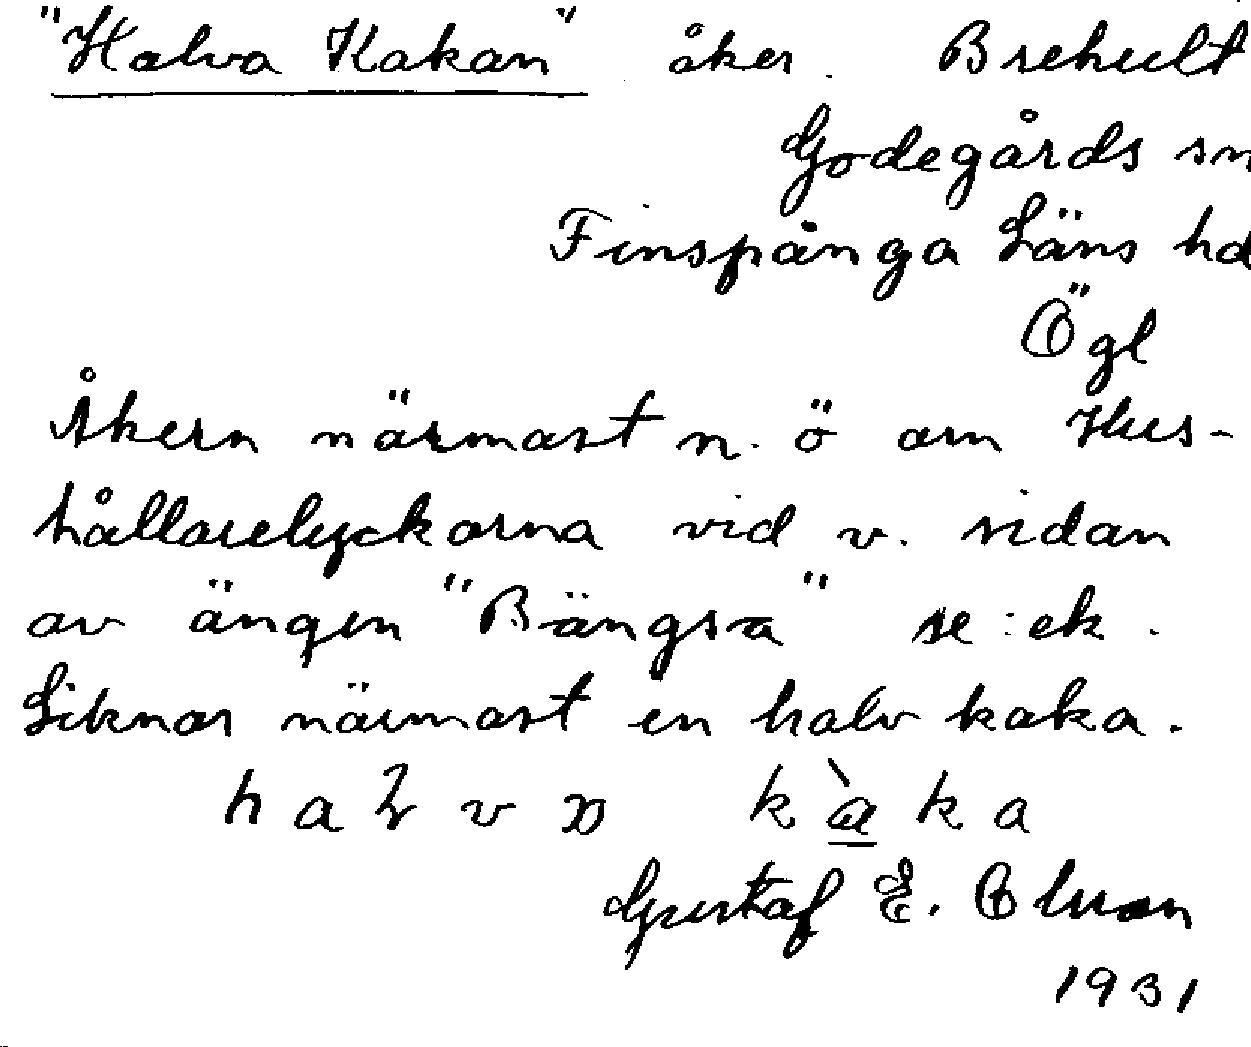 "Halva Kakan" åker. Brehult
Godegårds sn
Finspånga Läns hd
Ögl
Åkern närmast n. ö om Hus-
hållarelyckorna vid v. sidan
av ängen "Bängsa" se: ek.
Liknar närmast en halv kaka.
k a k a
Gustaf E. Olsson
1931